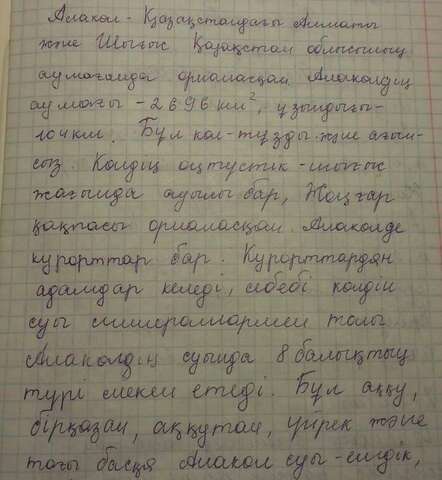 Алакол - Қазақстандағы Алматы
және Шығыс Қазақстан облысының
аумағында орналасқан Алаколдің
аумағы - 2696 км², ұзындығы -
104 км. Бұл көл - тұзды және ағын-
сыз. Көлдің оңтүстік - шығыс
жағында ауылы бар, Жоңғар
қақпасы орналасқан. Алакөлде
курорттар бар. Курорттардян
адамдар келеді, себебі көлдің
суы минералармен толы
Алакөлдің суында 8 балықтың
түрі мекен етеді. Бұл аққу,
бірқазан, аққутан, үйрек және
тағы басқа Алакол суы - емдік,